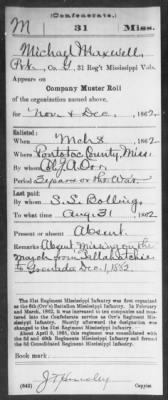 (Confederate.)
M 31 Miss.
Michael Maxwell
Pvt, Co. G, 31 Reg't Mississippi Vols.
Appears on
Company Muster Roll
of the organization named above,
for Nov & Dec, 1862.
Enlisted:
When Mch 8, 1862.
Where Pontotoc County, Miss.
By whom Col. J.A. Orr
Period 3 years or the War
Last paid:
By whom S.L. Bolling
To what time Aug 31, 1862.
Present or absent Absent
Remarks: Absent Missing on the
march from Tallahatchie
to Grenada Dec. 1, 1862.
The 31st Regiment Mississippi Infantry was first organized
as the 6th (Orr's) Battalion Mississippi Infantry. In February
and March, 1862, it was increased to ten companies and mus-
tered into the Confederate service as Orr's Regiment Mis-
sissippi Infantry. Shortly afterward the designation was
changed to the 31st Regiment Mississippi Infantry.
About April 9, 1865, this regiment was consolidated with
the 3d and 40th Regiments Mississippi Infantry and formed
the 3d Consolidated Regiment Mississippi Infantry.
Book mark:
(642) Copyist.